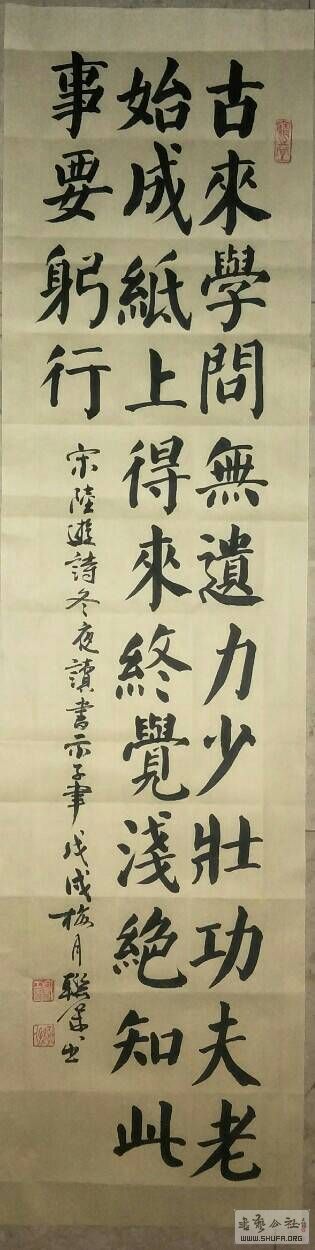 古來學問無遺力少壯功夫老
始成紙上得來終覺淺絕知此
事要躬行
宋陸遊詩冬夜讀書示子聿戊戌梅月聯
书艺公社
WWW.SHUFA.ORG